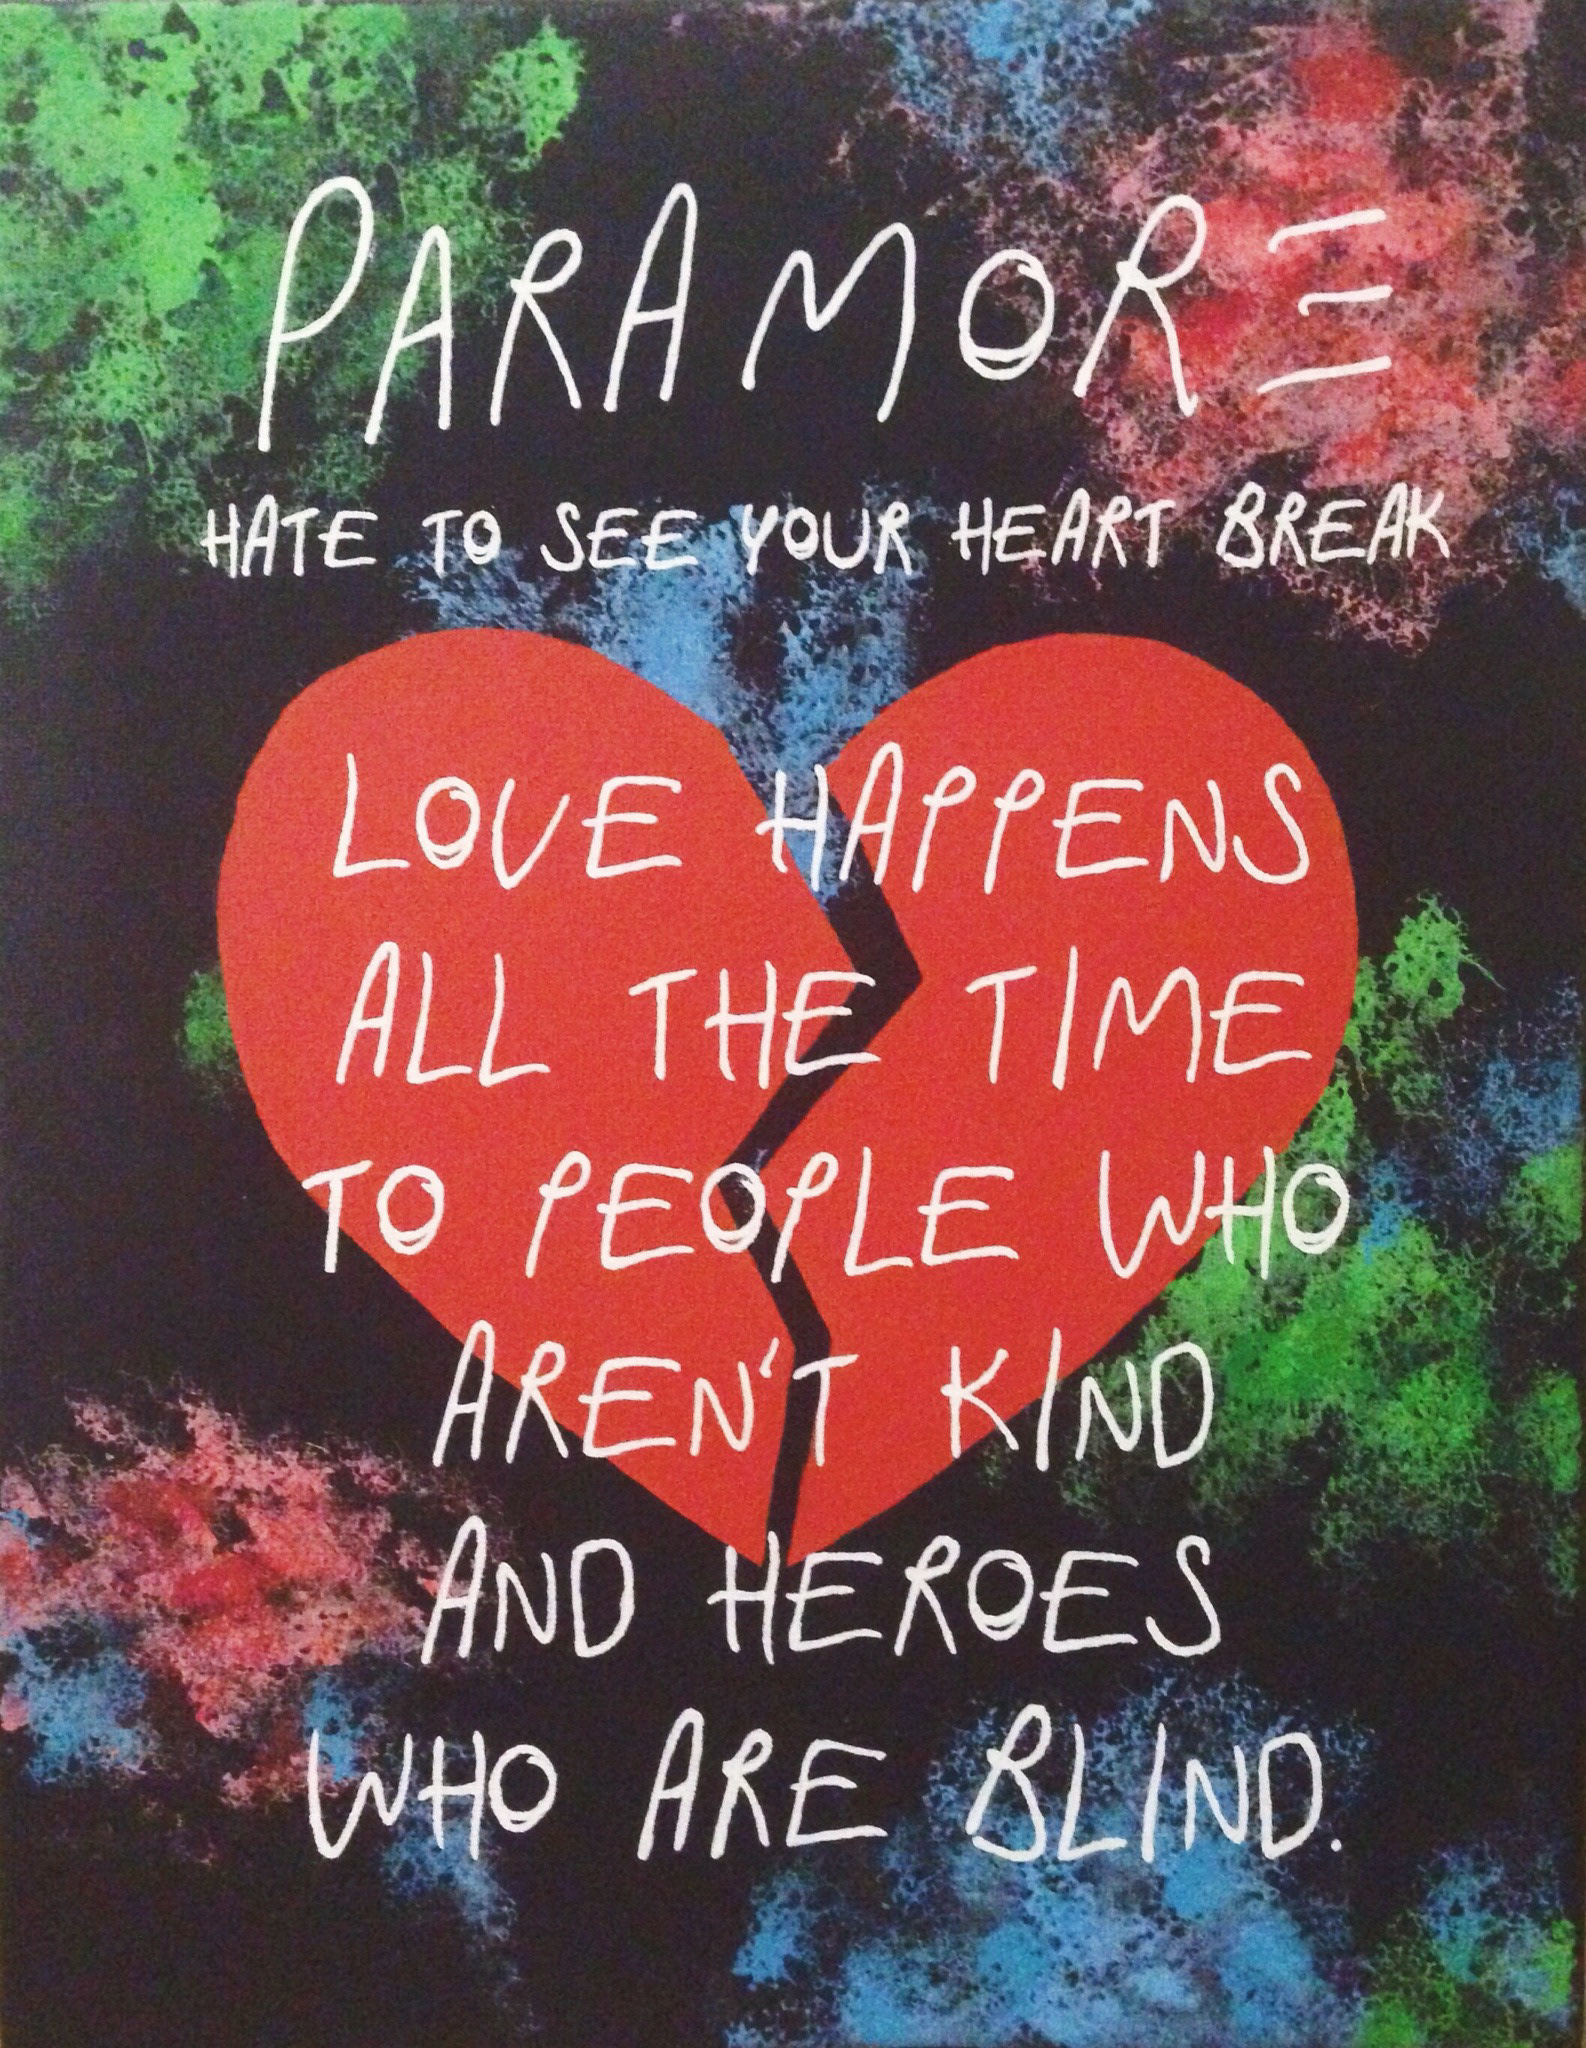 PARAMORE
HATE TO SEE YOUR HEART BREAK
LOVE HAPPENS
ALL THE TIME
TO PEOPLE WHO
AREN'T KIND
AND HEROES
WHO ARE BLIND.